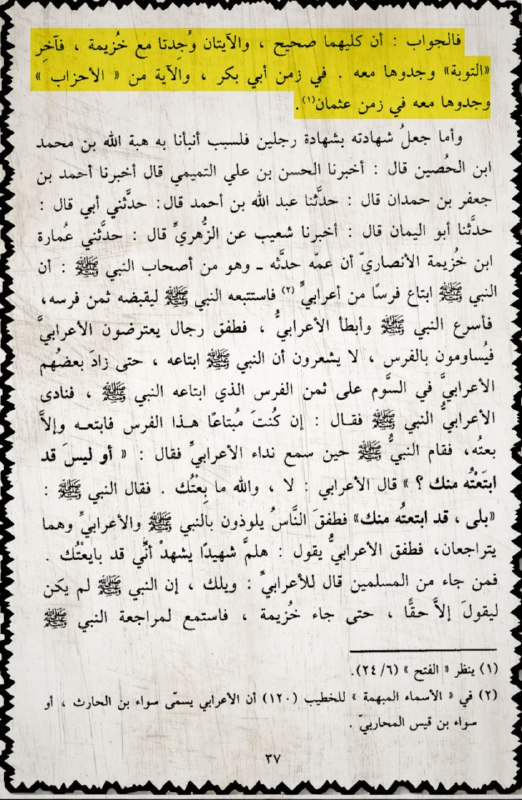 فالجواب : أن كليهما صحيح ، والآيتان وُجِدتا مع خُزيمة ، فآخِر
«التوبة» وجدوها معه . في زمن أبي بكر ، والآية من « الأحزاب »
وجدوها معه في زمن عثمان(١).
وأما جعلُ شهادته بشهادة رجلين فلسبب أنبأنا به هبة الله بن محمد
ابن الحُصين قال : أخبرنا الحسن بن علي التميمي قال أخبرنا أحمد بن
جعفر بن حمدان قال : حدَّثنا عبد الله بن أحمد قال : حدَّثني أبي قال :
حدَّثنا أبو اليمان قال : أخبرنا شعيب عن الزُّهريِّ قال : حدَّثني عُمارة
ابن خُزيمة الأنصاريّ أن عمّه حدَّثه ـ وهو من أصحاب النبي ﷺ : أن
النبي ﷺ ابتاع فرسًا من أعرابيٍّ(٢) فاستتبعه النبي ﷺ ليقبضه ثمن فرسه،
فأسرع النبي ﷺ وأبطأ الأعرابيُّ ، فطفق رجال يعترضون الأعرابيَّ
فيُساومون بالفرس ، لا يشعرون أن النبي ﷺ ابتاعه ، حتى زادَ بعضُهم
الأعرابيَّ في السَّوم على ثمن الفرس الذي ابتاعه النبي ﷺ ، فنادى
الأعرابيُّ النبي ﷺ فقال : إن كُنتَ مُبتاعًا هذا الفرس فابتعه وإلاَّ
بعتُه، فقام النبيُّ ﷺ حين سمع نداء الأعرابيِّ فقال : « أو ليسَ قد
ابتَعْتُه منك ؟ » قال الأعرابي : لا ، والله ما بِعْتُك . فقال النبي ﷺ :
«بلى ، قد ابتعتُه منك» فطفقَ النَّاسُ يلوذون بالنبي ﷺ والأعرابيِّ وهما
يتراجعان، فطفق الأعرابيُّ يقول : هلمَّ شهيدًا يشهدُ أنِّي قد بايعْتُك .
فمن جاء من المسلمين قال للأعرابيِّ : ويلك ، إن النبي ﷺ لم يكن
ليقولَ إلاَّ حقًّا ، حتى جاء خُزيمة ، فاستمع لمراجعة النبي ﷺ
(١) ينظر « الفتح » (٢٤/٦).
(٢) في « الأسماء المبهمة » للخطيب (١٢٠) أن الأعرابي يسمّى سواء بن الحارث ، أو
سواء بن قيس المحاربيّ .
٣٧